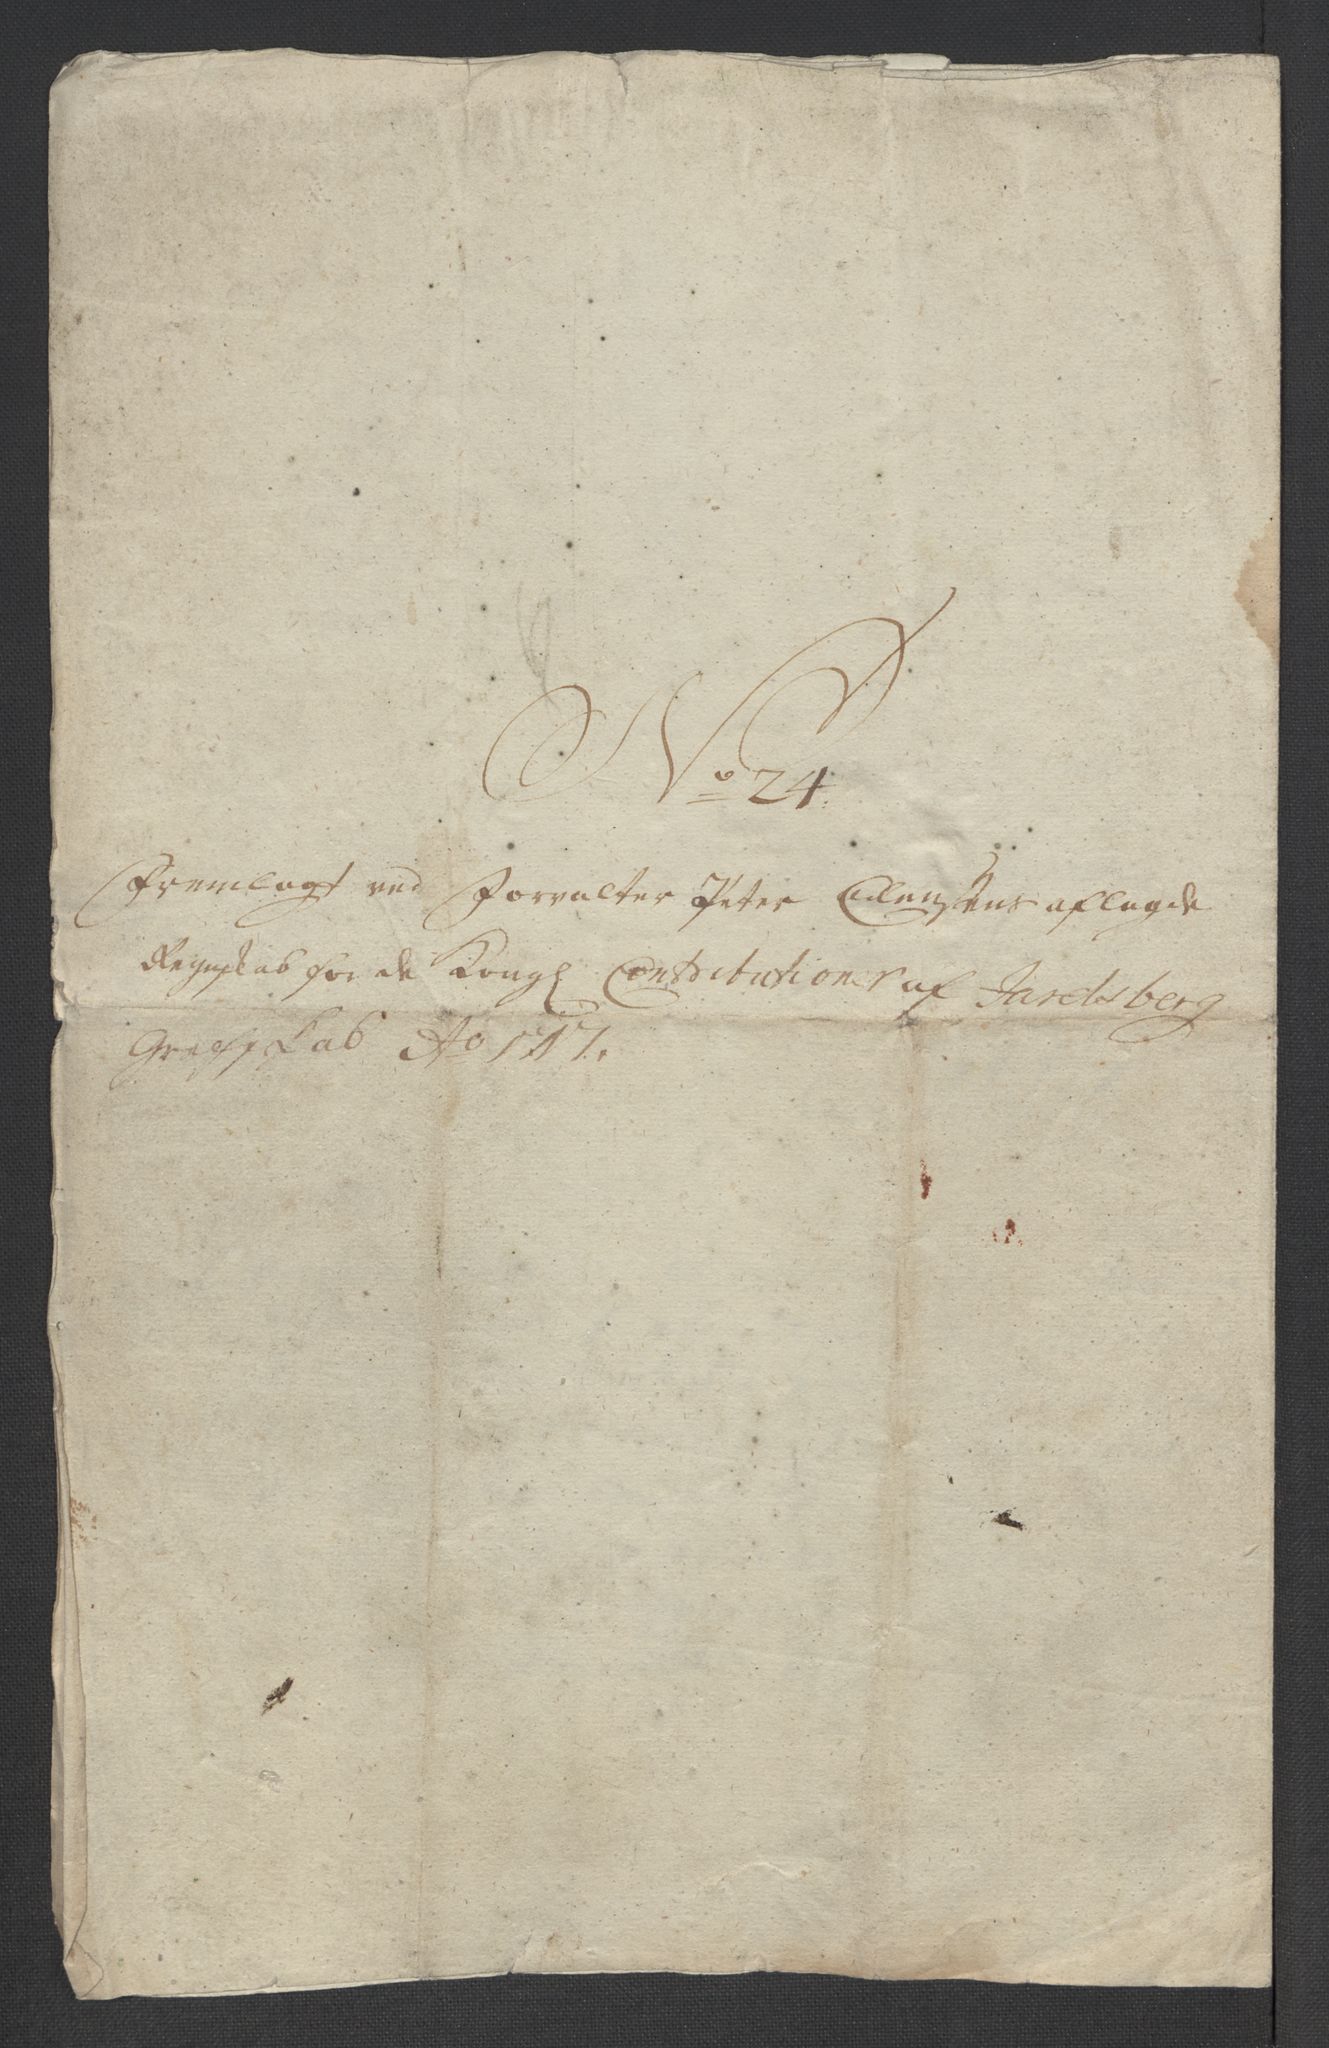 No 24.
Fremlagt ved Forvalter Peter Clausens aflagde
Regnskab for de Kongl Contributioner af Jarlsberg
Grefskab Ao 1717.